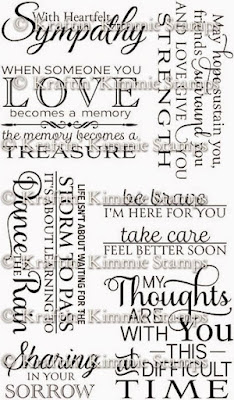 With Heartfelt
Sympathy
WHEN SOMEONE YOU
LOVE
becomes a memory
the memory becomes a
TREASURE
May hope sustain you,
friends surround you
AND LOVE GIVE YOU
STRENGTH
LIFE ISN'T ABOUT WAITING FOR THE
STORM TO PASS
IT'S ABOUT LEARNING TO
Dance in the
Rain
be brave
I'M HERE FOR YOU
take care
FEEL BETTER SOON
MY
Thoughts
ARE WITH
You
at THIS
DIFFICULT
TIME
Sharing
IN YOUR
SORROW
© Kraftin' Kimmie Stamps